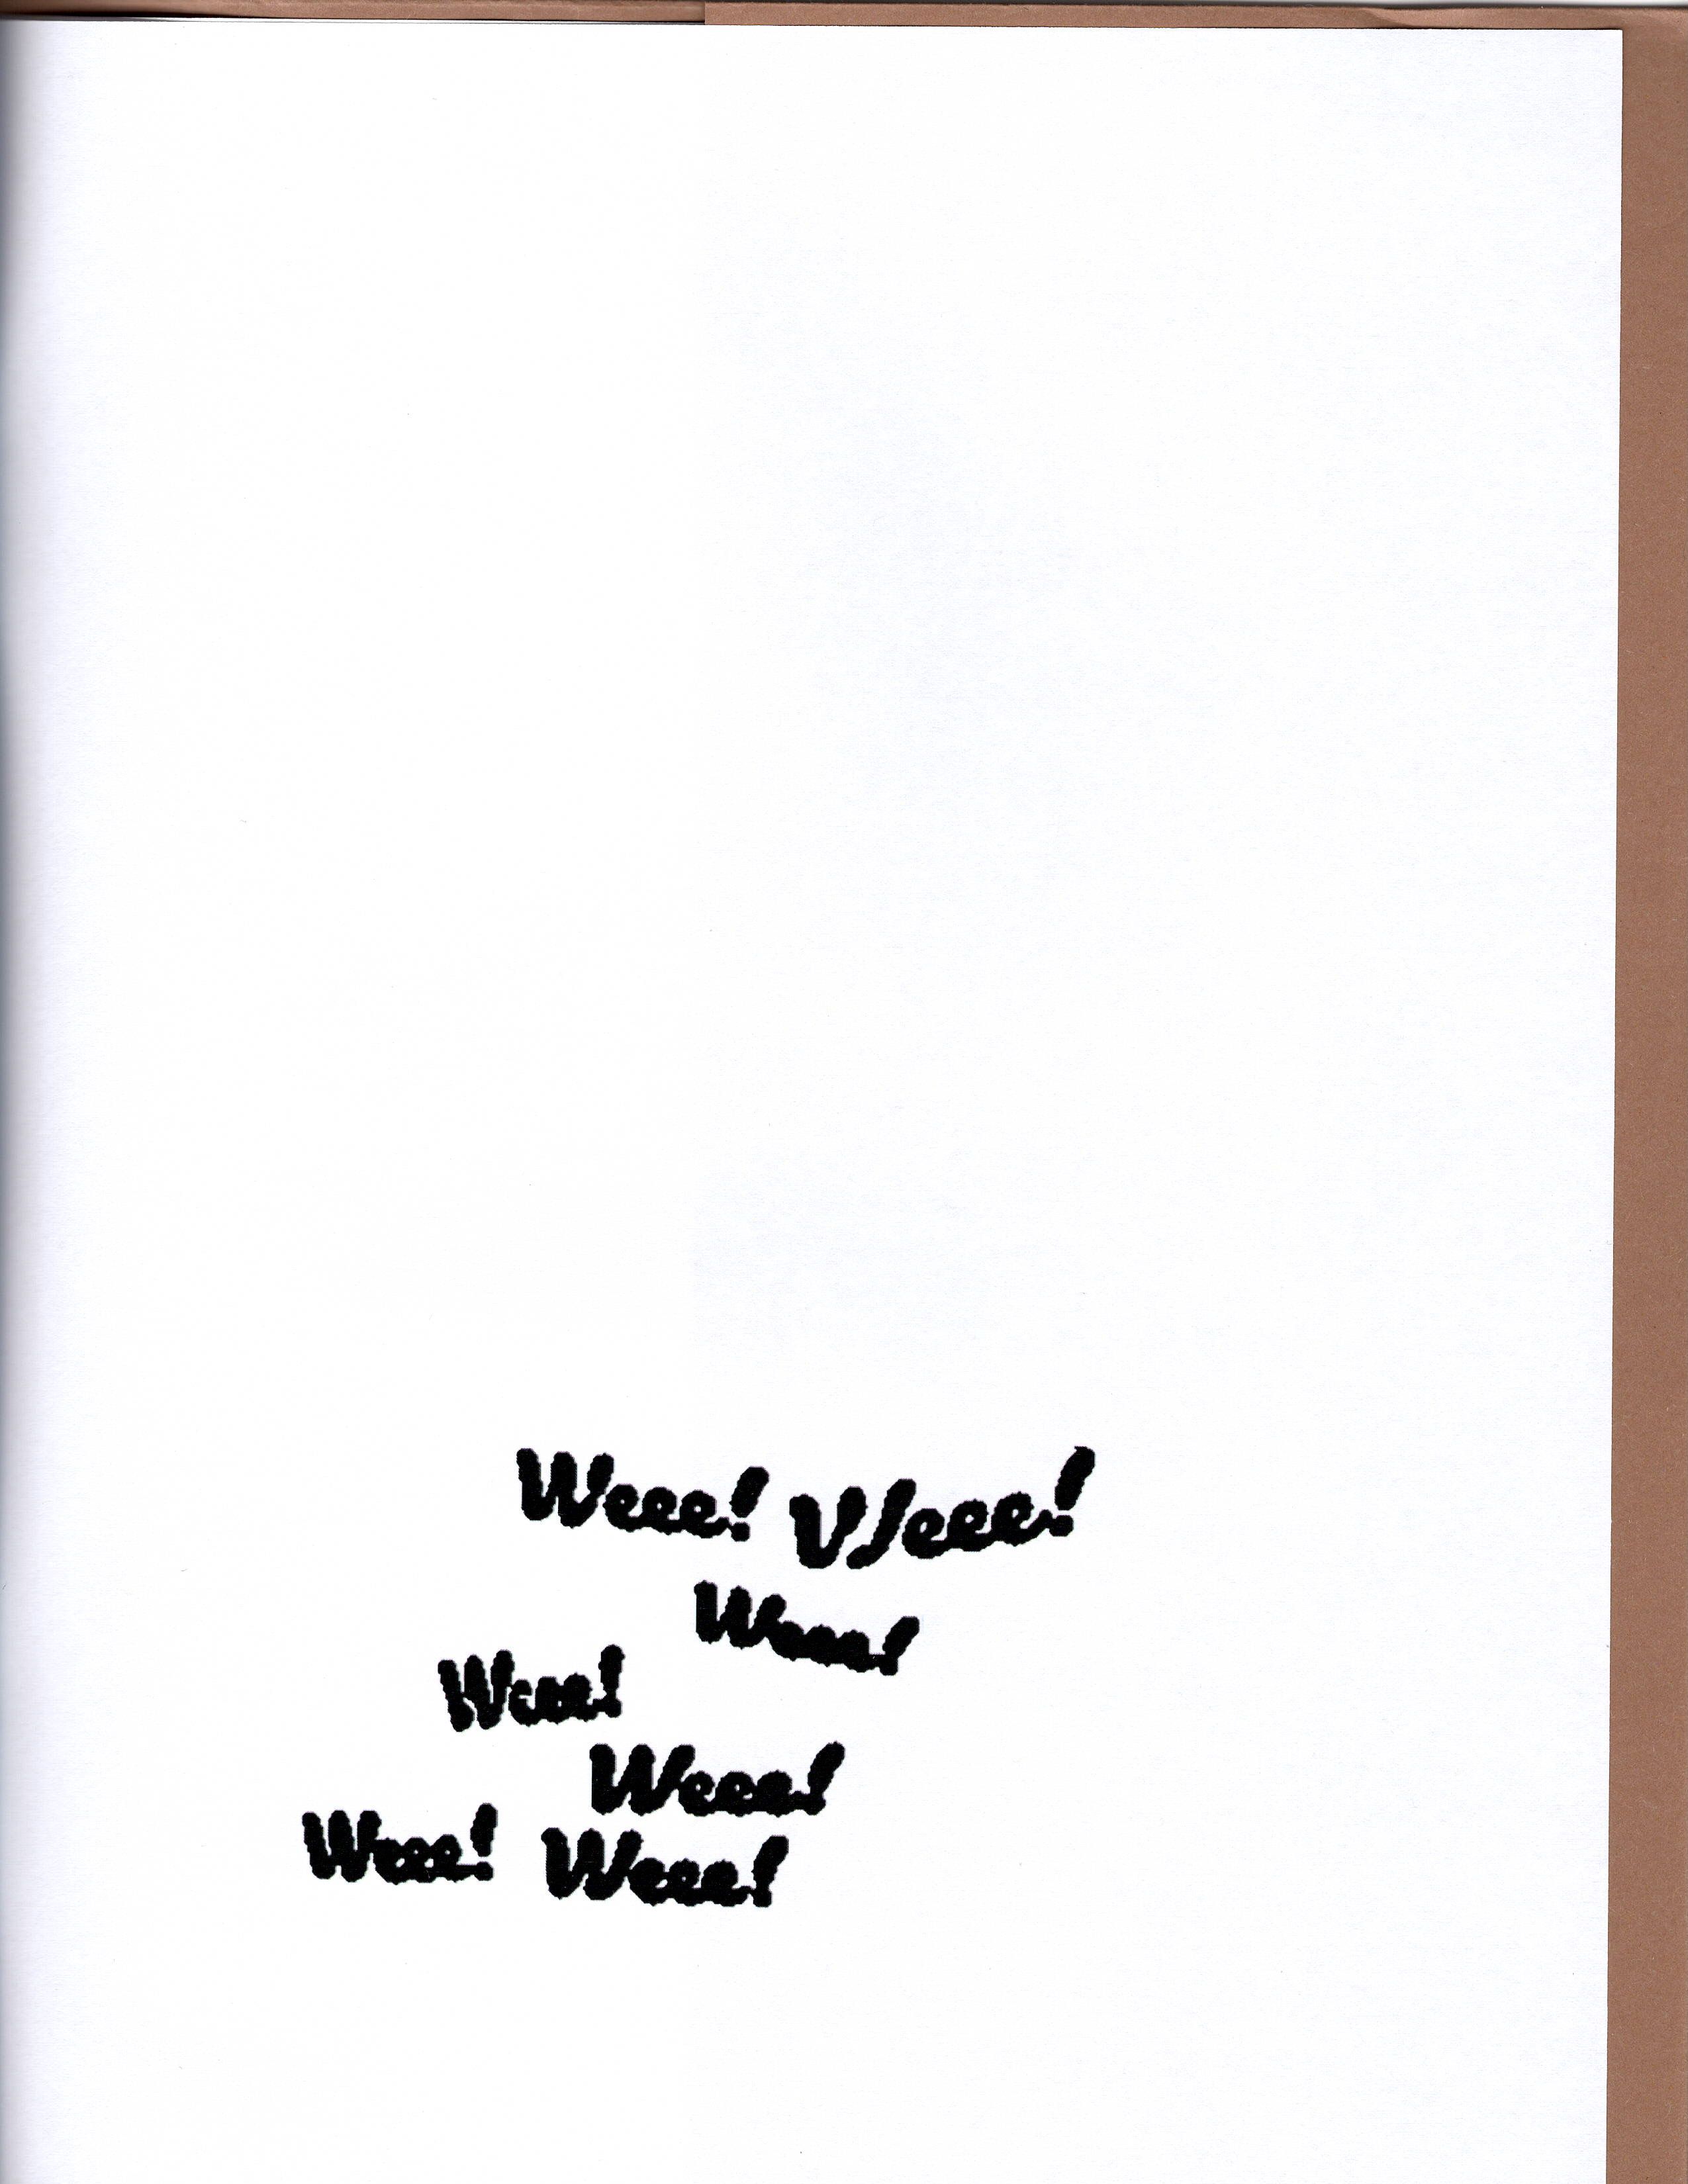 Weee! Weee!
Weee!
Weee!
Weee!
Weee! Weee!